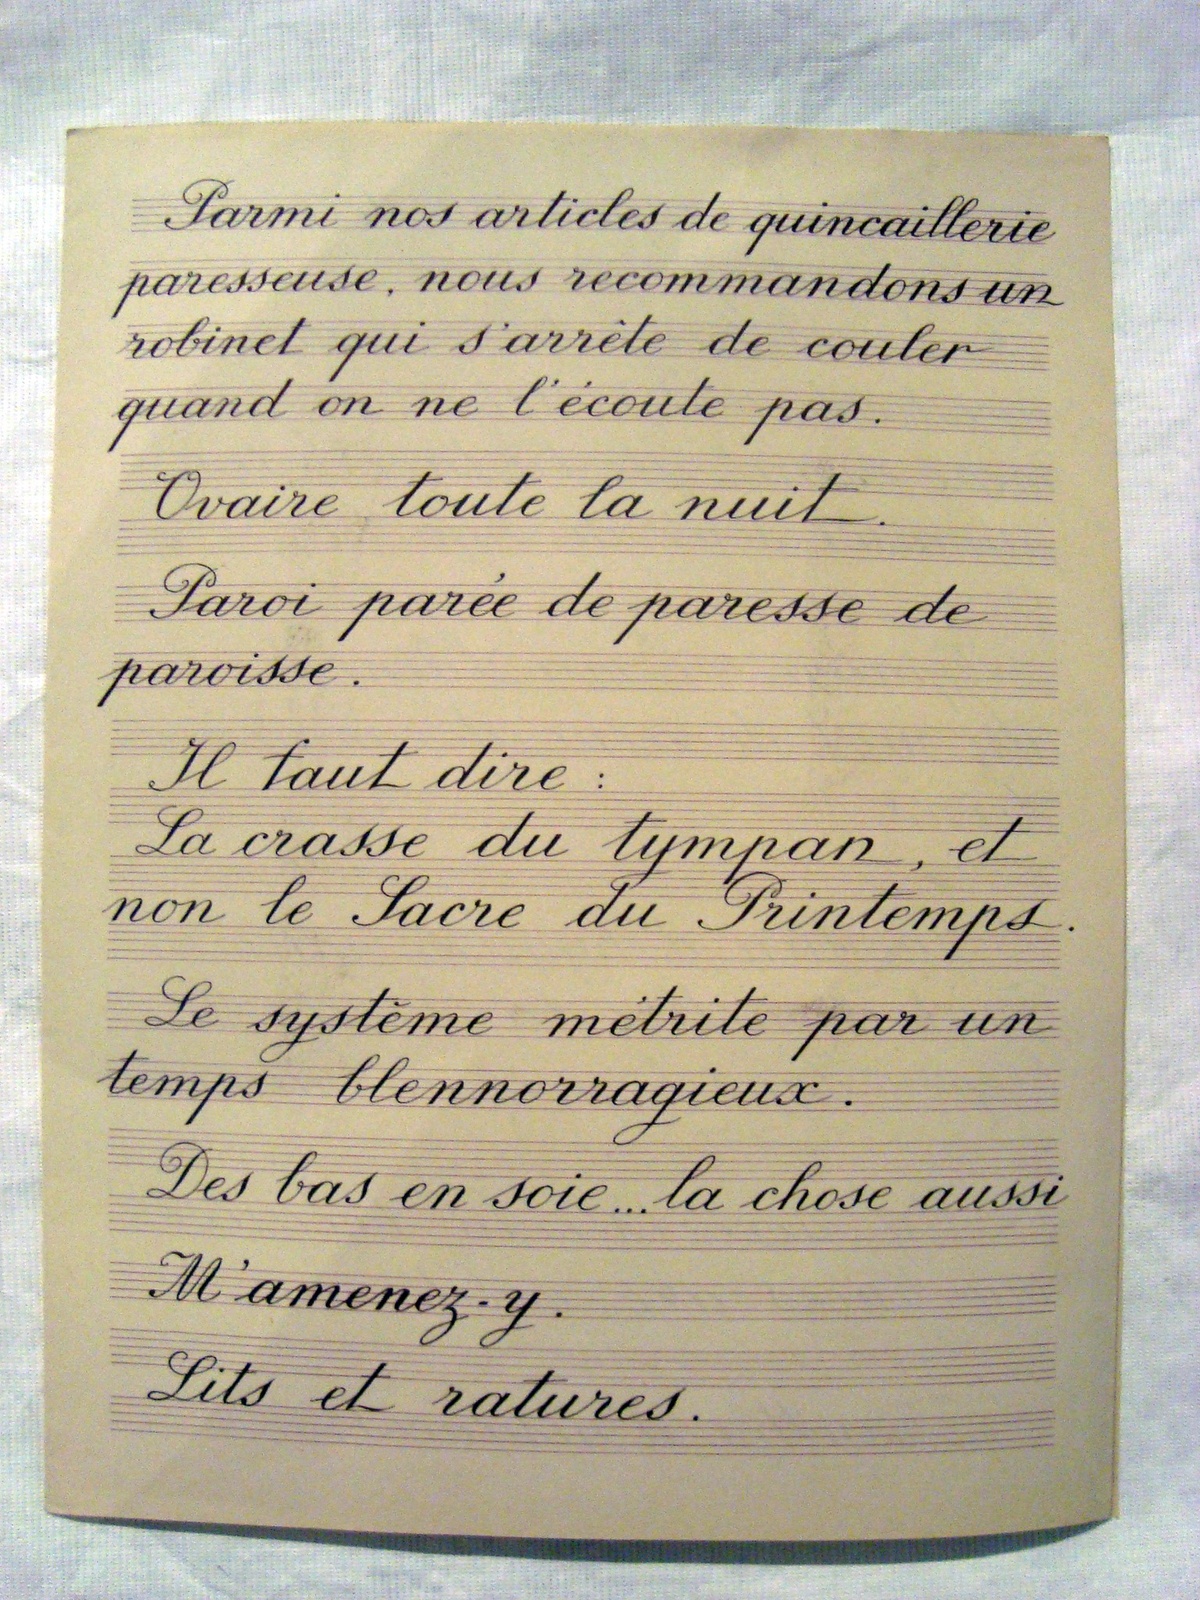 Parmi nos articles de quincaillerie
paresseuse, nous recommandons un
robinet qui s'arrête de couler
quand on ne l'écoute pas.
Ovaire toute la nuit.
Paroi parée de paresse de
paroisse.
Il faut dire :
La crasse du tympan, et
non le Sacre du Printemps.
Le système métrite par un
temps blennorragieux.
Des bas en soie...la chose aussi
M'amenez-y.
Lits et ratures.